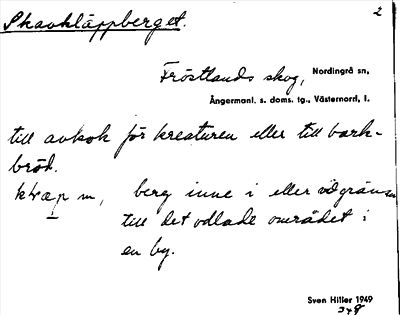 Skavkläppberget.
2
Fröstlands skog, Nordingrå sn,
Ångermanl. s. doms. tg., Västernorrd, l.
till avkok för kreaturen eller till bark-
bröd.
klæp m, berg inne i eller vid gränsen
till det odlade området i
en by.
Sven Hiller 1949